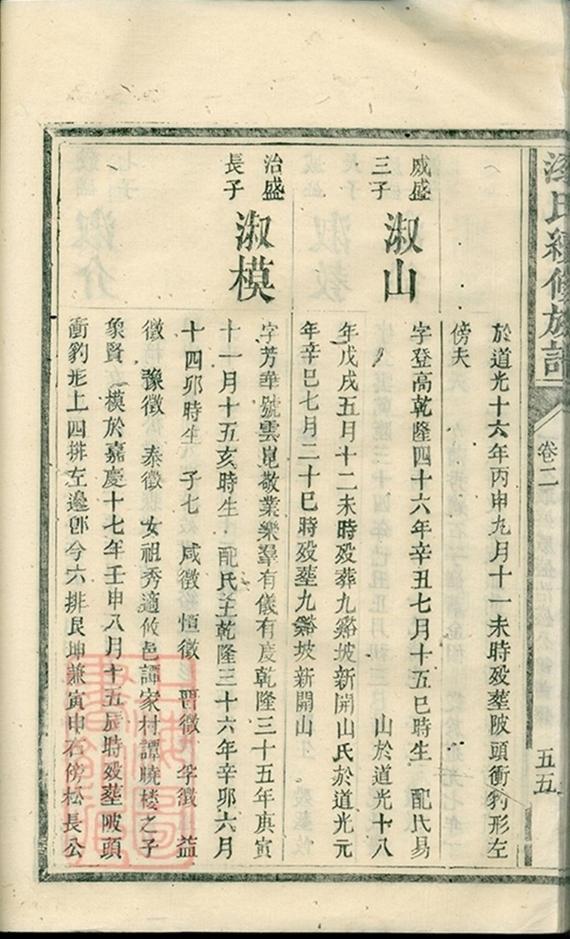 氏續修族譜
卷二
五五
於道光十六年丙申九月十一未時歿塟陂頭衝豹形左
傍夫
威盛
三子
淑山
字登高乾隆四十六年辛丑七月十五巳時生 配氏易
山於道光十八
年戊戌五月十二未時歿葬九谿坡新開山氏於道光元
年辛巳七月二十巳時歿塟九谿坡新開山
治盛
長子
淑模
字芳華號雲崑敬業樂羣有儀有慶乾隆三十五年庚寅
十一月十五亥時生 配氏王乾隆三十六年辛卯六月
十四卯時生 子七 咸徵 恒徵 晋徵 孚徵 益
徵 豫徵 泰徵 女祖秀適攸邑譚家村譚曉楼之子
象賢 模於嘉慶十七年壬申八月十五辰時歿塟陂頭
衝豹形上四排左邊卽今六排艮坤兼寅申右傍松長公